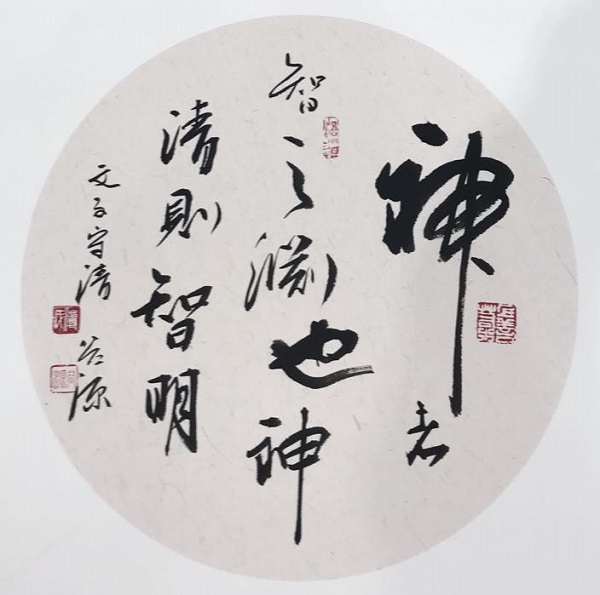 神者
智之渊也神
清则智明
文子守清
谷源